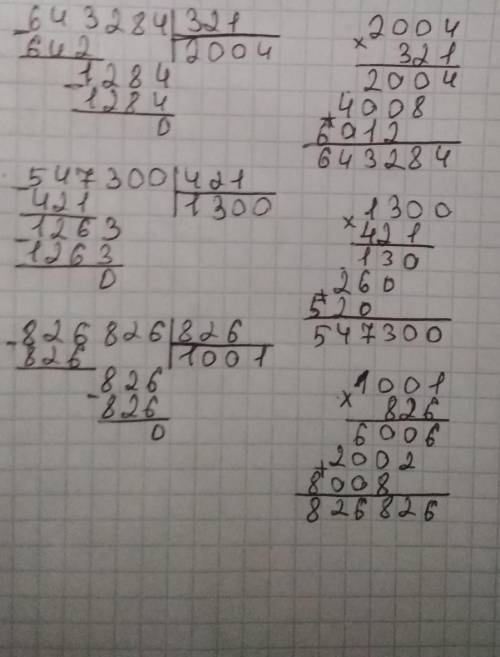 643284 321
642 2004
1284
1284
0
2004
× 321
2004
4008
6012
643284
547300 421
421 1300
1263
1263
0
1300
× 421
130
260
520
547300
826826 826
826 1001
826
826
0
1001
× 826
6006
2002
8008
826826